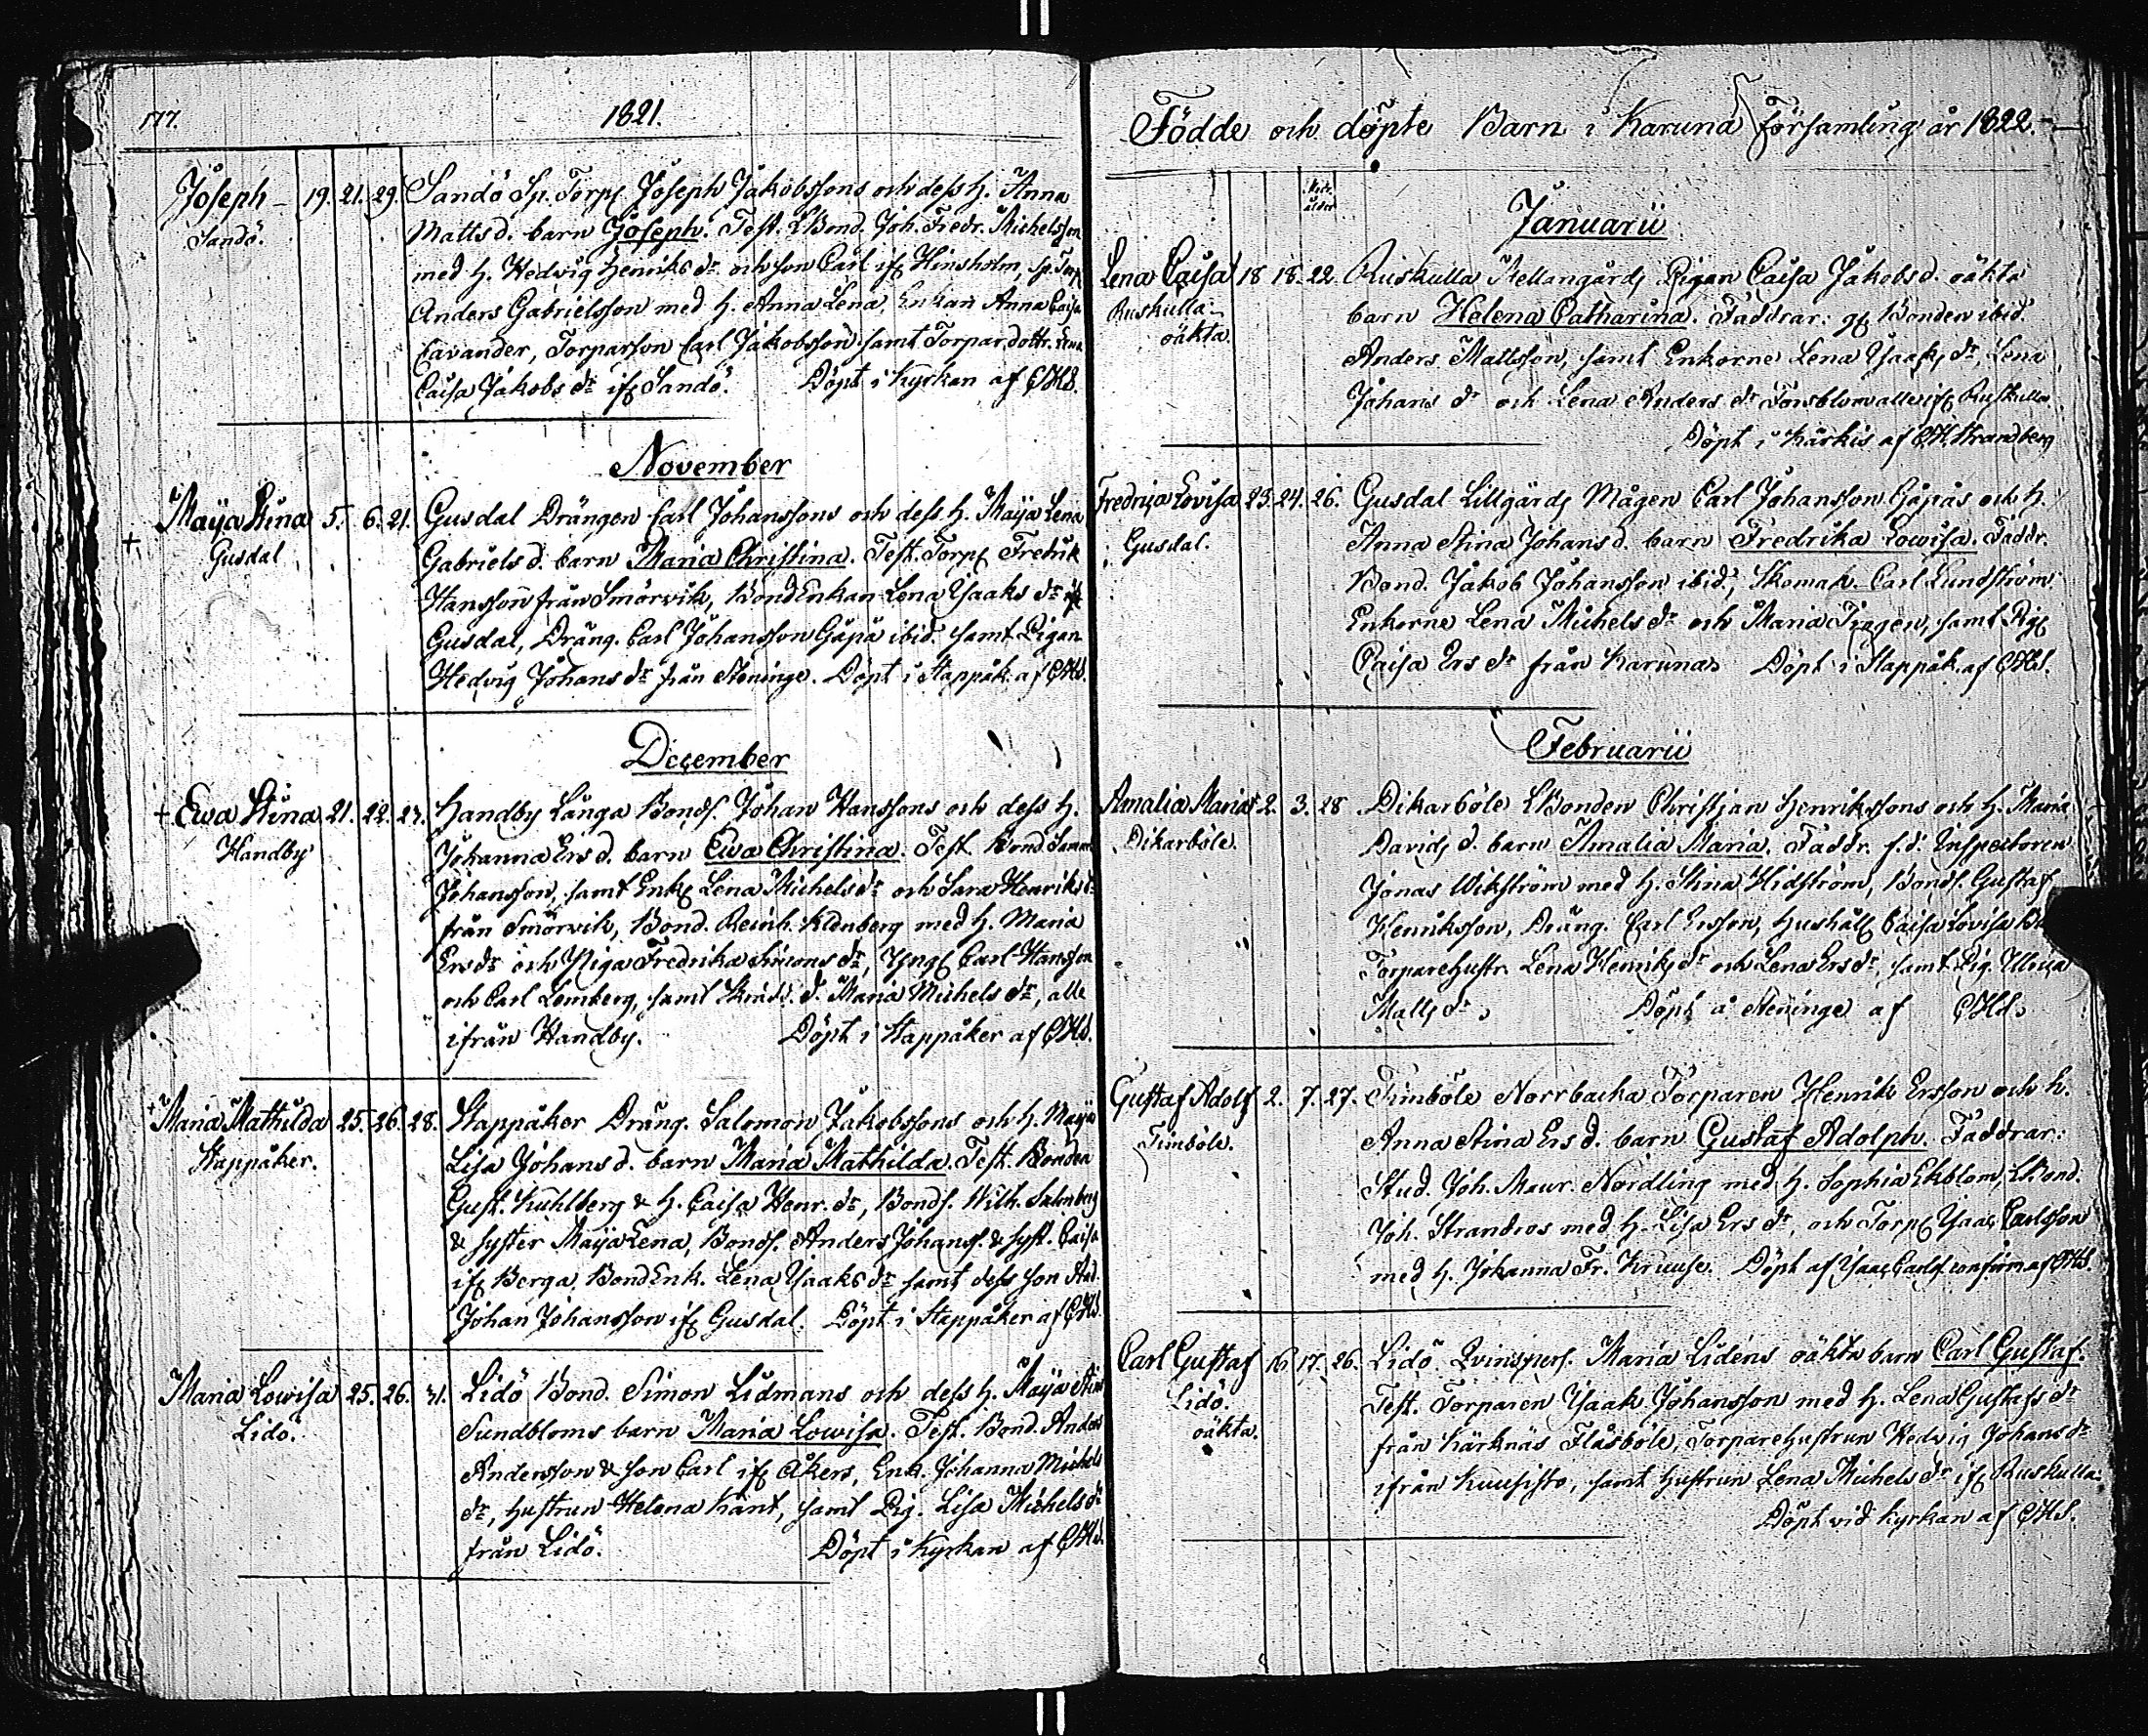 177.
1821.
Joseph - 19. 21. 29. Sandö Sp. Torp. Joseph Jakobssons och dess h. Anna
Sandö. Matts d. barn Joseph. Test. LBond. Joh. Fredr. Michelsson
med h. Hedvig Henriks dr. och son Carl ifr. Hinsholm, Sp. Torp.
Anders Gabrielsson med h. Anna Lena, Enkan Anna Caisa
Cavander, Torparson Carl Jakobsson samt Torpardottr. Lena
Caisa Jakobs dr ifr. Sandö. Döpt i Kyrkan af CHS.
November
+ Maija Stina 5. 6. 21. Gusdal Drängen Carl Johanssons och dess h. Maija Lena
Gusdal Gabriels d. barn Maria Christina. Test. Torp. Fredrik
Hansson från Smörvik, BondEnkan Lena Ysaaks dr ifr.
Gusdal, Dräng. Carl Johansson Gåpå ibid. samt Pigan
Hedvig Johans dr från Steninge. Döpt i Stappåk. af CHS.
December
+ Ewa Stina 21. 22. 27. Handby Långa Bonds. Johan Hanssons och dess h.
Handby Johanna Ers d. barn Ewa Christina. Test. Bond
Johansson, samt Enk. Lena Michels dr och Sara Henriks dr
från Smörvik, Bond. Reinh. med h. Maria
Ers dr och Piga Fredrika Simons dr, Yngl. Carl Hansson
och Carl Lemberg, samt d. Maria Michels dr, alle
ifrån Handby. Döpt i Stappåker af CHS.
+ Maria Mathilda 25. 26. 28. Stappåker Dräng. Salomon Jakobssons och h. Maija
Stappåker. Lisa Johans d. barn Maria Mathilda. Test. Bonden
Gust. Kuhlberg & h. Caisa Henr. dr, Bonds. Wilh. Salmberg
& syster Maija Lena, Bonds. Anders Johanss. & syst. Caisa
ifr. Berga. BondEnk. Lena Ysaaks dr samt dess son
Johan Johansson ifr. Gusdal. Döpt i Stappåker af CHS.
Maria Lowisa 25. 26. 31. Lidö Bond. Simon Lidmans och dess h. Maija Stina
Lidö. Sundbloms barn Maria Lowisa. Test. Bond. Anders
Andersson & son Carl ifr. Åkers, Enk. Johanna Michels
dr, hustrun Helena Känt, samt Pig. Lisa Michels dr
från Lidö. Döpt i Kyrkan af CHS.
Födde och döpte Barn i Karuna Församling år 1822.
Januarii
Lena Caisa 18 18. 22. Ruskulla Mellangårds Pigan Caisa Jakobs d. oäkta
Ruskulla barn Helena Catharina. Faddrar: Bonden ibid.
oäkta Anders Mattsson, samt Enkorne Lena Ysaks dr, Lena
Johans dr och Lena Anders dr Forsblom alle ifr. Ruskulla
Döpt i Kärkis af CHStrandberg
Fredrica Lovisa 23. 24. 26. Gusdal Lillgårds Mågen Carl Johansson Gåpås och h.
Gusdal. Anna Stina Johans d. barn Fredrika Lowisa. Faddr.
Bond. Jakob Johansson ibid., Skomak. Carl Lundström
Enkorne Lena Michels dr och Maria samt Pig.
Caisa Ers dr från Karuna. Döpt i Stappåk. af CHS.
Februarii
Amalia Maria 2. 3. 28 Dikarböle LBonden Christian Henrikssons och h. Maria
Dikarböle. Davids d. barn Amalia Maria. Faddr. f.d. Inspectoren
Jonas Wikström med h. Stina Hidström, Bonds. Gustaf
Henriksson, Dräng. Carl Ersson, hushåll. Caisa Lovisa
Torparehustr. Lena Henriks dr och Lena Ers dr, samt Pig. Ulrica
Matts dr. Döpt å Steninge af CHS.
Gustaf Adolf 2. 7. 27. Fimböle Norrbacka Torparen Henrik Ersson och h.
Fimböle. Anna Stina Ers d. barn Gustaf Adolph. Faddrar:
Stud. Joh. Maur. Nordling med h. Sophia Ekblom, LBond.
Joh. Strandros med h. Lisa Ers dr, och Torp. Ysaac Carlsson
med h. Johanna Fr. Kruuse. Döpt af Ysaac Carls. confirm. af CHS.
Carl Gustaf 16 17. 26. Lidö. Qvinspers. Maria Lidéns oäkta barn Carl Gustaf.
Lidö. Test. Torparen Ysaak Johansson med h. Lena Gustafs dr
oäkta. från Kärknäs Flåsböle, Torparehustrun Hedvig Johans dr
ifrån Kuusisto, samt hustrun Lena Michels dr ifr. Ruskulla.
Döpt vid Kyrkan af CHS.